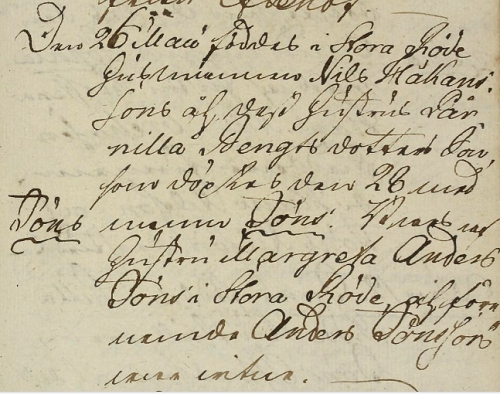 Den 26 Maii föddes i Stora Röde
Husmannen Nils Håkans
sons och dess Hustrus Pär
nilla Bengts dotters Son,
som döptes den 28 med
Jöns namn Jöns. Bars af
Hustru Margreta Anders
Jöns i Stora Röde, och före
nemde Anders Jönssons